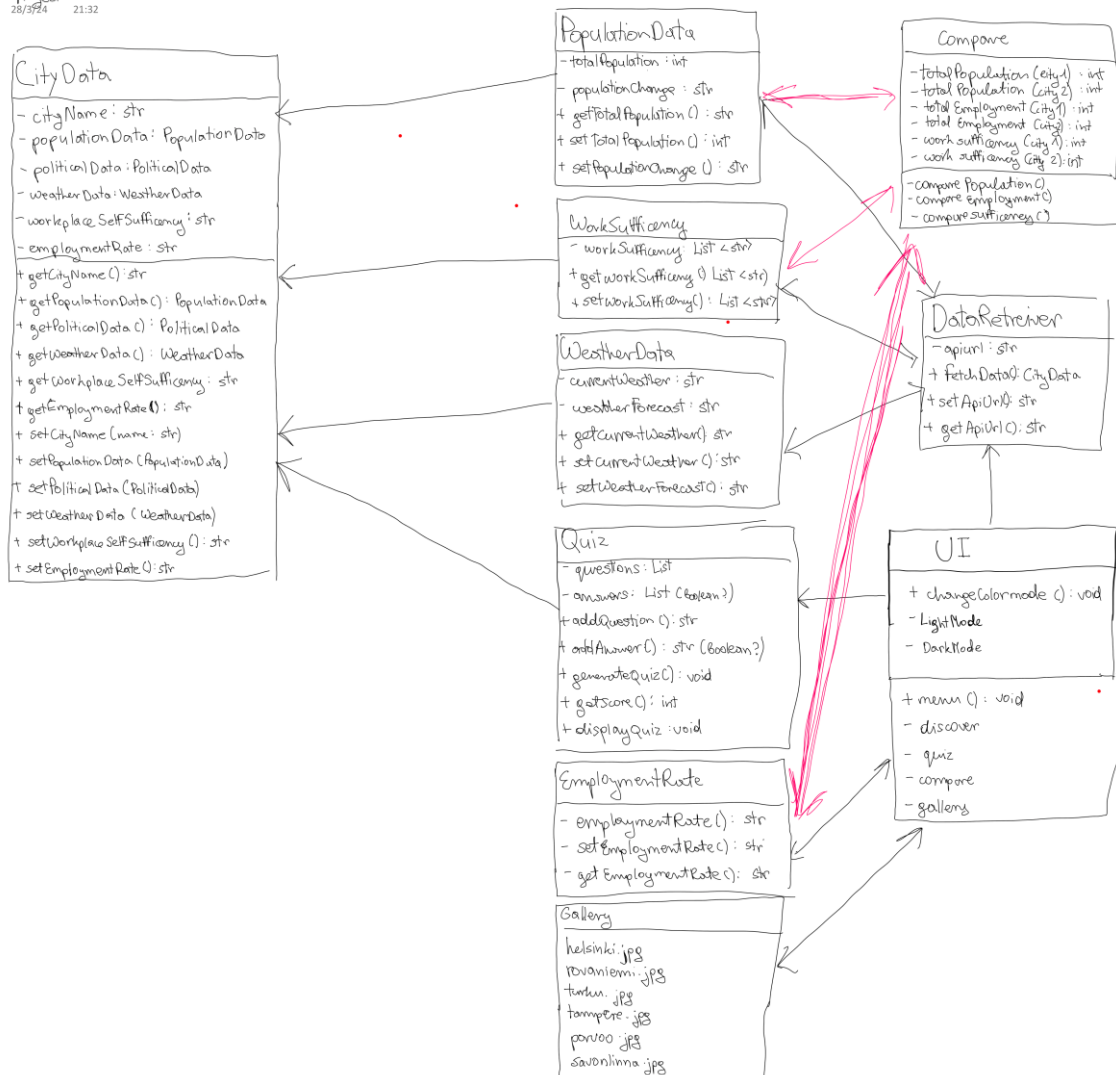 28/3/24 21:32
CityData
- cityName: str
- populationData: PopulationData
- politicalData: PoliticalData
- weatherData: WeatherData
- workplaceSelfSufficency: str
- employmentRate: str
+ getCityName(): str
+ getPopulationData(): PopulationData
+ getPoliticalData(): PoliticalData
+ getWeatherData(): WeatherData
+ getWorkplaceSelfSufficency: str
+ getEmploymentRate(): str
+ setCityName(name: str)
+ setPopulationData(PopulationData)
+ setPoliticalData(PoliticalData)
+ setWeatherData(WeatherData)
+ setWorkplaceSelfSufficency(): str
+ setEmploymentRate(): str
PopulationData
- totalPopulation: int
- populationChange: str
+ getTotalPopulation(): str
+ setTotalPopulation(): int
+ setPopulationChange(): str
WorkSufficency
- workSufficency: List <str>
+ getworkSufficency() List <str>
+ setworkSufficency(): List <str>
WeatherData
- currentWeather: str
- weatherForecast: str
+ getCurrentWeather() str
+ setCurrentWeather(): str
+ setWeatherForecast(): str
Quiz
- questions: List
- answers: List (Boolean?)
+ addQuestion(): str
+ addAnswer(): str (Boolean?)
+ generateQuiz(): void
+ getScore(): int
+ displayQuiz: void
EmploymentRate
- employmentRate(): str
- setEmploymentRate(): str
- getEmploymentRate(): str
Gallery
helsinki.jpg
rovaniemi.jpg
turku.jpg
tampere.jpg
porvoo.jpg
savonlinna.jpg
Compare
- totalPopulation(city1): int
- total Population (city2): int
- total Employment (city1): int
- total Employment (city2): int
- work sufficency (city 1): int
- work sufficency (city 2): int
- compare Population()
- compare Employment()
- compare sufficency()
DataRetreiver
- apiurl: str
+ fetchData(): CityData
+ setApiUrl(): str
+ getApiUrl(): str
UI
+ changeColormode(): void
- LightMode
- DarkMode
+ menu(): void
- discover
- quiz
- compare
- gallery